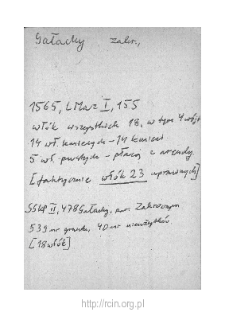 Gałachy zakr.
1565, LMaz I, 155
włók wszystkich 18, w tym 4 wójt
14 wł. kmiecych – 14 kmieci
5 wł. pustych – płacą z arendy
[faktycznie włók 23 uprawnych]
SGKP II, 478 Gałachy, pow. Zakroczym
539 mr gruntu, 40 mr nieużytków
[18 włók]
http://rcin.org.pl